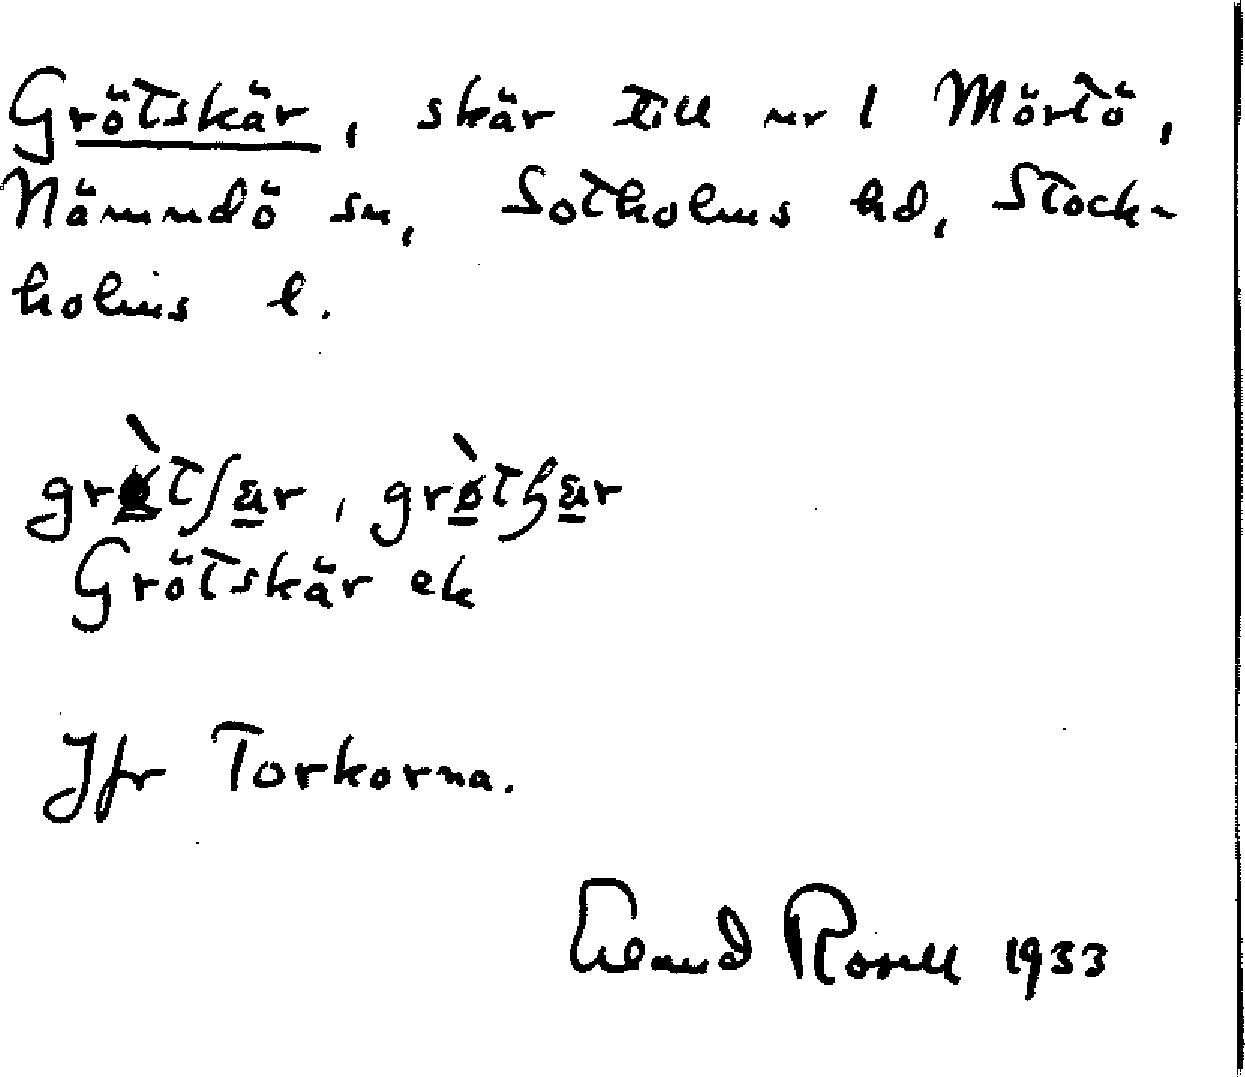 Grötskär, skär till nr 1 Mörtö,
Nämndö sn, Sotholms hd, Stock-
holms l.
Grötskär ek
Jfr Torkorna.
Erland Rosell 1933